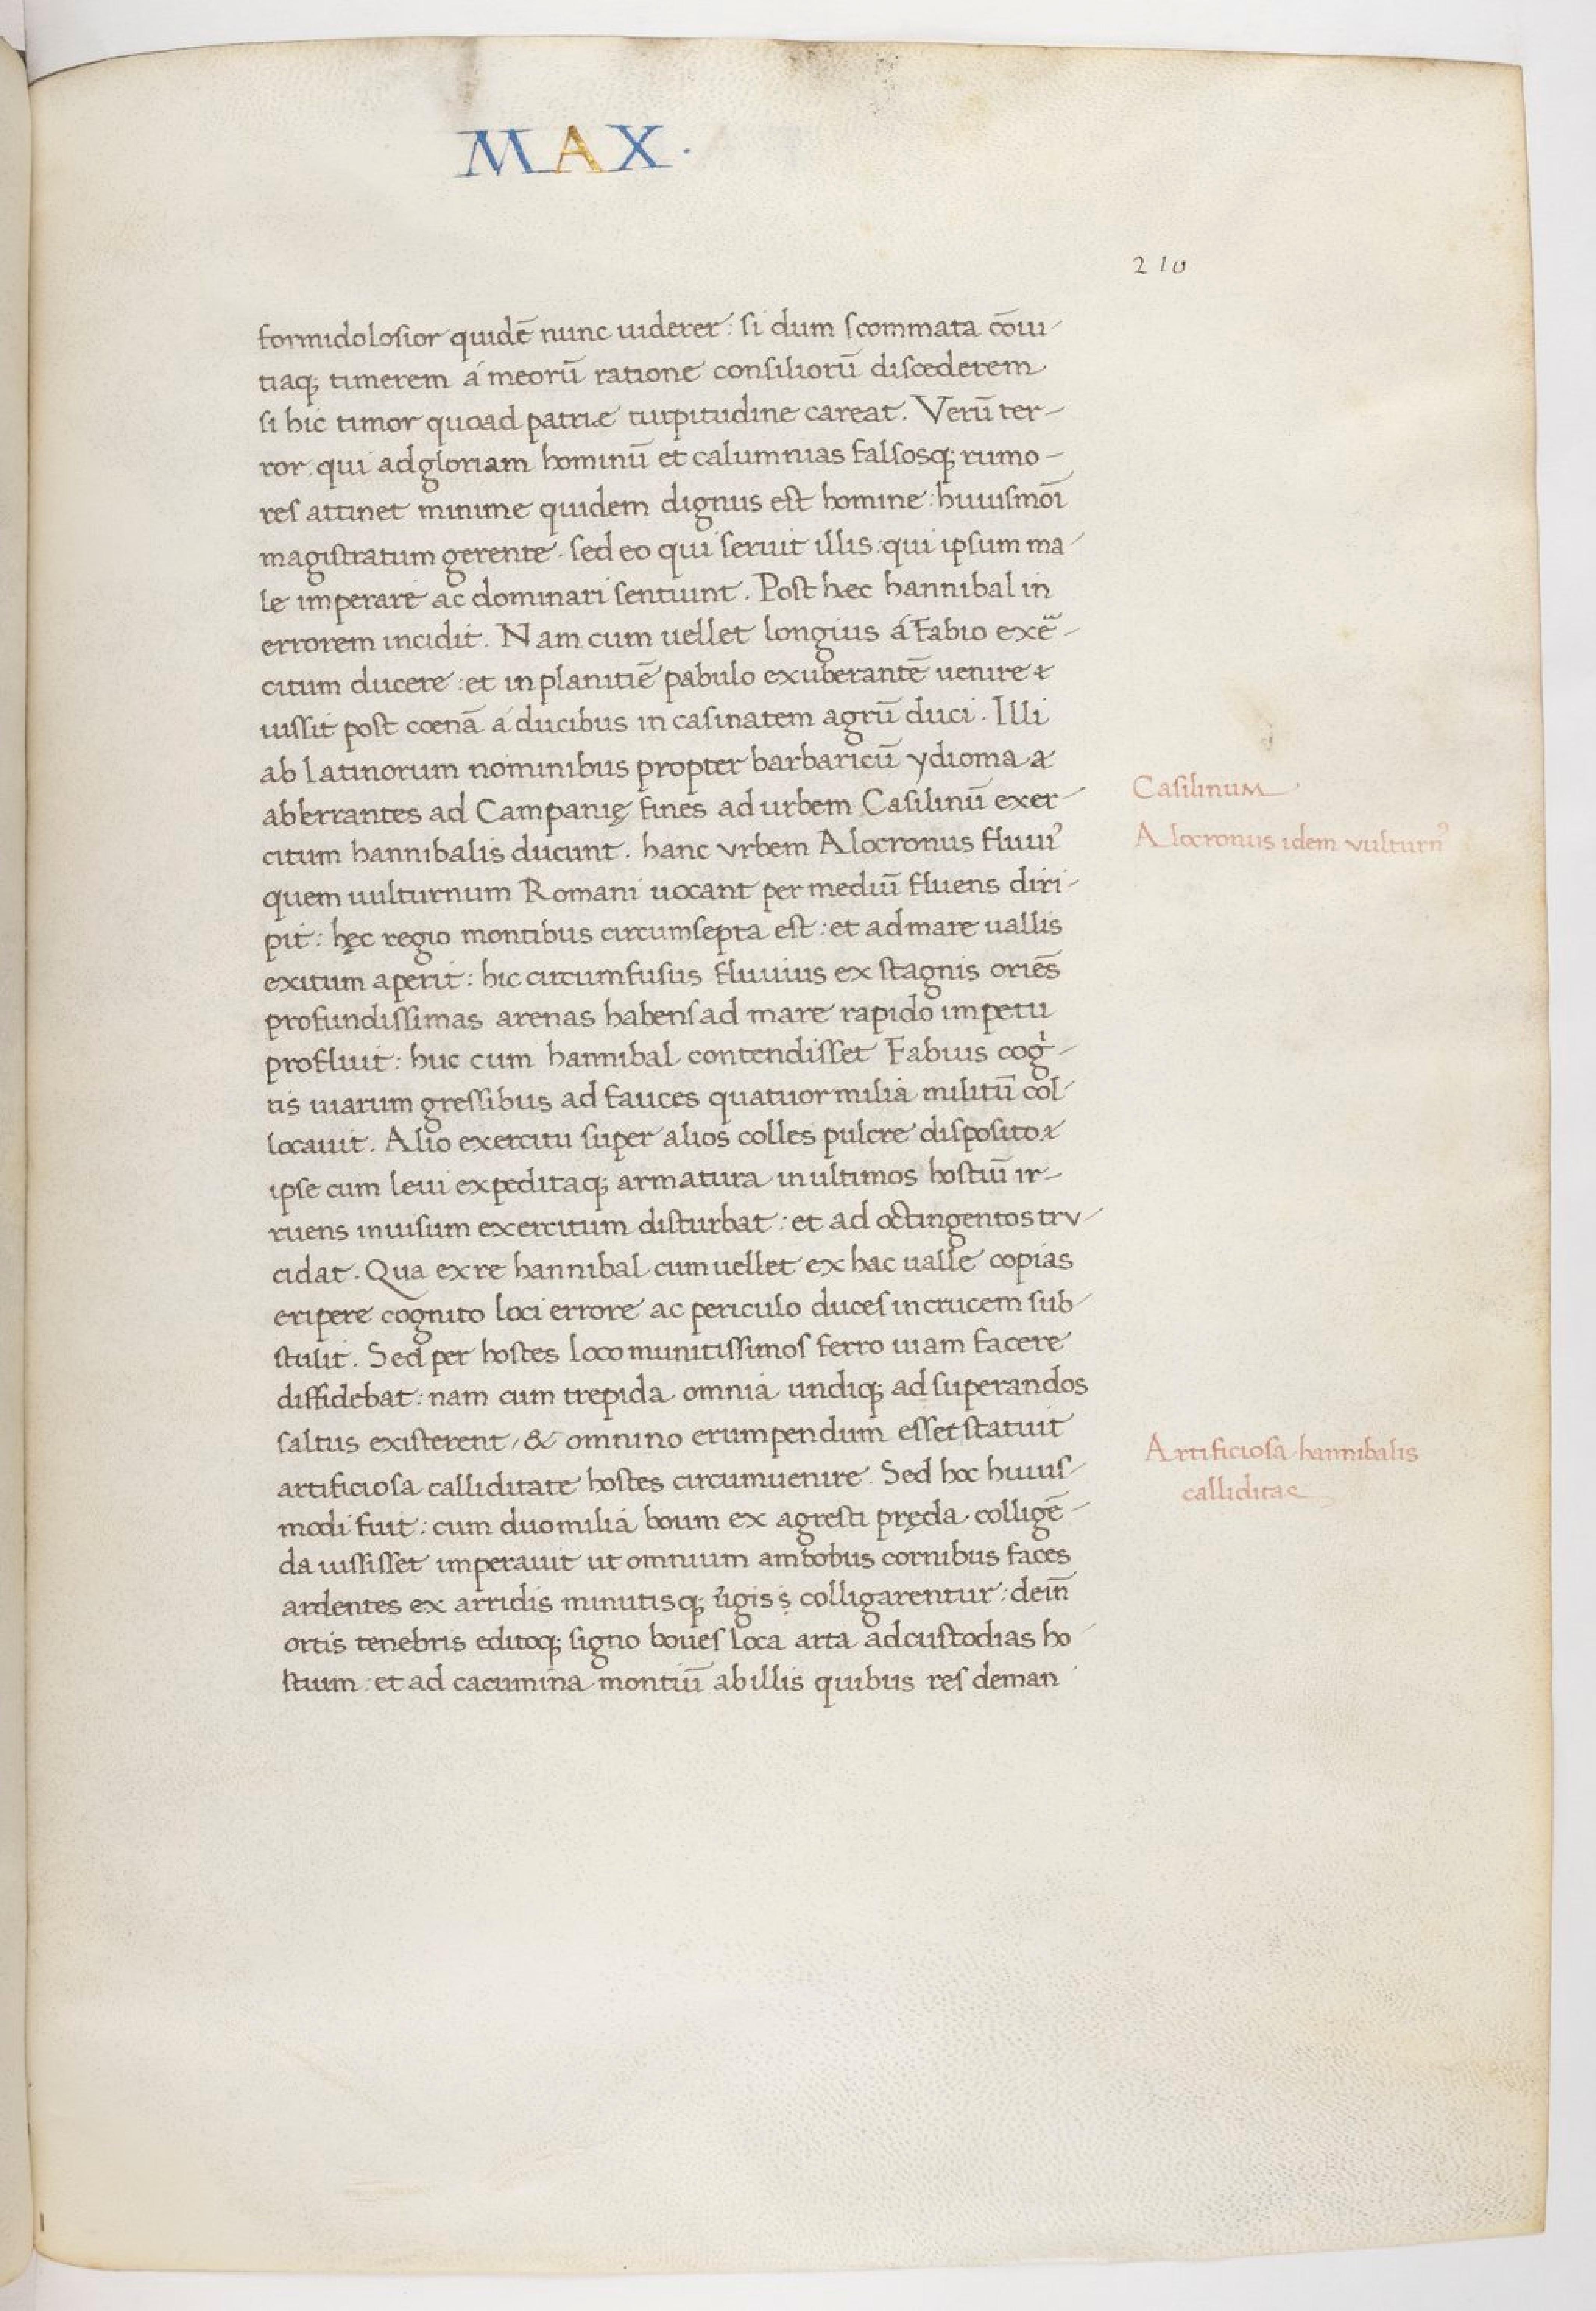 MAX·
210
formidolosior quidē nunc uiderer: si dum scommata cōui-
tiaq; timerem á meorū ratione consiliorū discederem
si hic timor quoad patriæ turpitudine careat. Verū ter-
ror. qui ad gloriam hominū et calumnias falsosq; rumo-
res attinet minime quidem dignus est homine: huiusmōi
magistratum gerente. sed eo qui seruit illis: qui ipsum ma-
le imperare ac dominari sentiunt. Post hæc hannibal in
errorem incidit. Nam cum uellet longius á Fabio exē-
citum ducere: et in planitiē pabulo exuberantē uenire
iussit post coenā á ducibus in casinatem agrū duci. Illi
ab latinorum nominibus propter barbaricū ydioma
abberrantes ad Campanię fines ad urbem Casilinū exer-
Casilinum
citum hannibalis ducunt. hanc vrbem Alocronus fluuiꝰ
Alocronus idem vulturnꝰ
quem uulturnum Romani uocant per mediū fluens diri-
pit: hęc regio montibus circumsepta est: et ad mare uallis
exitum aperit: hic circumfusus fluuius ex stagnis oriēs
profundissimas arenas habens ad mare rapido impetu
profluit: huc cum hannibal contendisset Fabius cogi-
tis uiarum gressibus ad fauces quatuor milia militū col-
locauit. Alio exercitu super alios colles pulcre disposito
ipse cum leui expeditaq; armatura in ultimos hostiū ir-
ruens inuisum exercitum disturbat: et ad octingentos trv-
cidat. Qua ex re hannibal cum uellet ex hac ualle copias
eripere cognito loci errore ac periculo duces in crucem sub-
stulit. Sed per hostes loco munitissimos ferro uiam facere
diffidebat: nam cum trepida omnia undiq; ad superandos
saltus existerent, & omnino erumpendum esset statuit
artificiosa calliditate hostes circumuenire. Sed hoc huius-
Artificiosa hannibalis
calliditas
modi fuit: cum duo milia boum ex agresti pręda colligē-
da iussisset imperauit ut omnium ambobus cornibus faces
ardentes ex arridis minutisq; colligarentur: dein̄
ortis tenebris editoq; signo boues loca arta ad custodias ho-
stium: et ad cacumina montiū ab illis quibus res deman